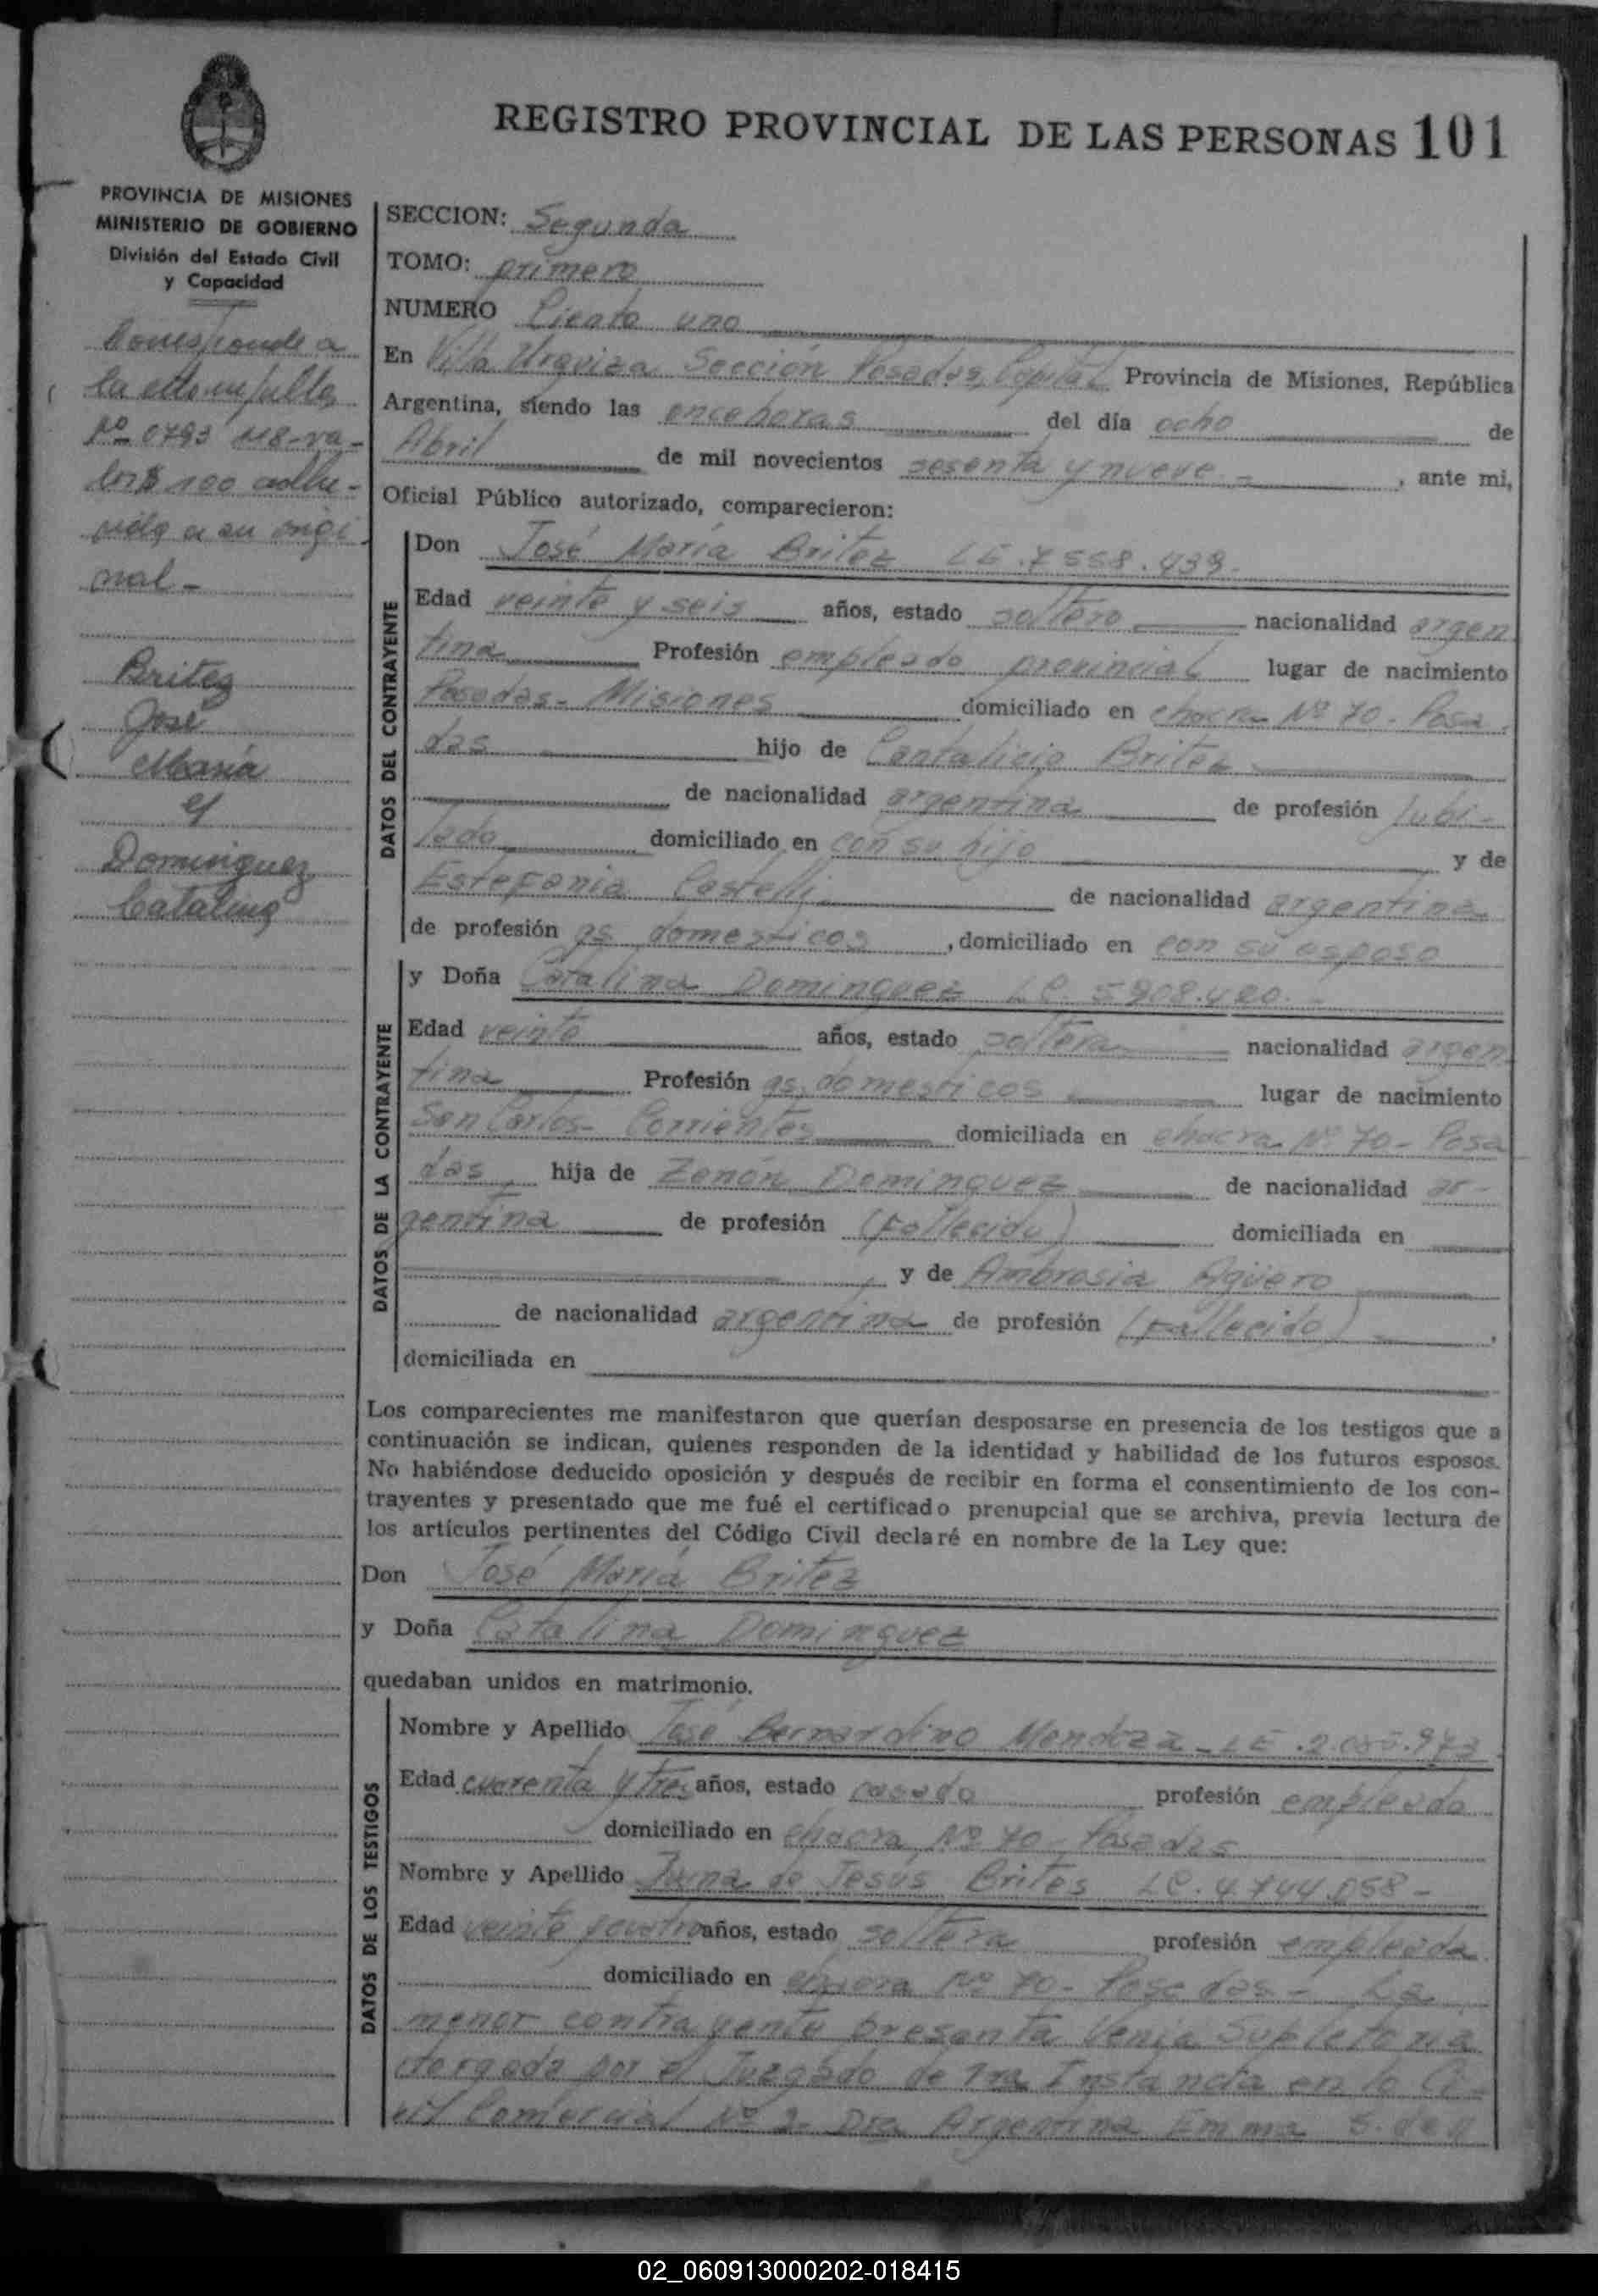 REGISTRO PROVINCIAL DE LAS PERSONAS 101
PROVINCIA DE MISIONES
MINISTERIO DE GOBIERNO
División del Estado Civil
y Capacidad
Corresponde a
la
Nº 0793 118-va-
lor $ 100 adhe-
rida a su origi
nal-
Britez
José
María
y
Dominguez
Catalina
SECCION: Segunda
TOMO: primero
NUMERO Ciento uno
En Villa Urquiza Sección Posadas, Capital Provincia de Misiones, República
Argentina, siendo las once horas del día ocho de
Abril de mil novecientos sesenta y nueve - , ante mi,
Oficial Público autorizado, comparecieron:
DATOS DEL CONTRAYENTE
Don José María Britez LE. 7558.439.
Edad veinte y seis años, estado soltero nacionalidad argen
tina Profesión empleado provincial lugar de nacimiento
Posadas- Misiones domiciliado en chacra Nº 70- Posa
das hijo de Cantalicio Britez
de nacionalidad argentina de profesión Jubi-
lado domiciliado en con su hijo y de
Estefania Castelli de nacionalidad argentina
de profesión qs domesticos , domiciliado en con su esposo
DATOS DE LA CONTRAYENTE
y Doña Catalina Dominguez LC. 5908.420.
Edad veinte años, estado soltera nacionalidad argen
tina Profesión qs. domesticos lugar de nacimiento
San Carlos- Corrientes domiciliada en chacra Nº 70- Posa
das hija de Zenón Dominguez de nacionalidad ar-
gentina de profesión (Fallecido) domiciliada en
y de Ambrosia Agüero
de nacionalidad argentina de profesión (Fallecido) .
domiciliada en
Los comparecientes me manifestaron que querían desposarse en presencia de los testigos que a
continuación se indican, quienes responden de la identidad y habilidad de los futuros esposos.
No habiéndose deducido oposición y después de recibir en forma el consentimiento de los con-
trayentes y presentado que me fué el certificado prenupcial que se archiva, previa lectura de
los artículos pertinentes del Código Civil declaré en nombre de la Ley que:
Don José María Britez
y Doña Catalina Dominguez
quedaban unidos en matrimonio.
DATOS DE LOS TESTIGOS
Nombre y Apellido José Bernardino Mendoza - LE. 2.085.973
Edad cuarenta y tres años, estado casado profesión empleado
domiciliado en chacra Nº 70- Posadas
Nombre y Apellido Juana de Jesús Brites LC. 4.744.058-
Edad veinte y cuatro años, estado soltera profesión empleada
domiciliado en chacra Nº 70- Posadas- La
menor contrayente presenta Venia Supletoria
otorgada por el Juzgado de 1ra Instancia en lo Ci-
vil Comercial Nº 2- Dra Argentina Emma S. de
02_060913000202-018415